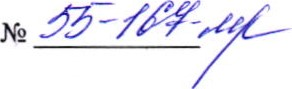 № 55-167-мр